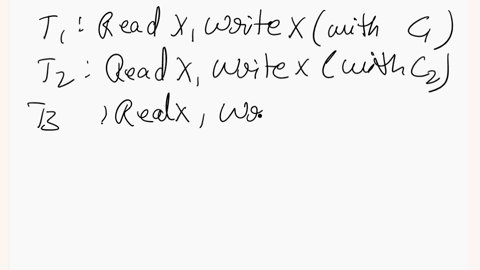 T1 : Read X, write X (with C1)
T2 : Read X, write X (with C2)
T3 , Read X, wr